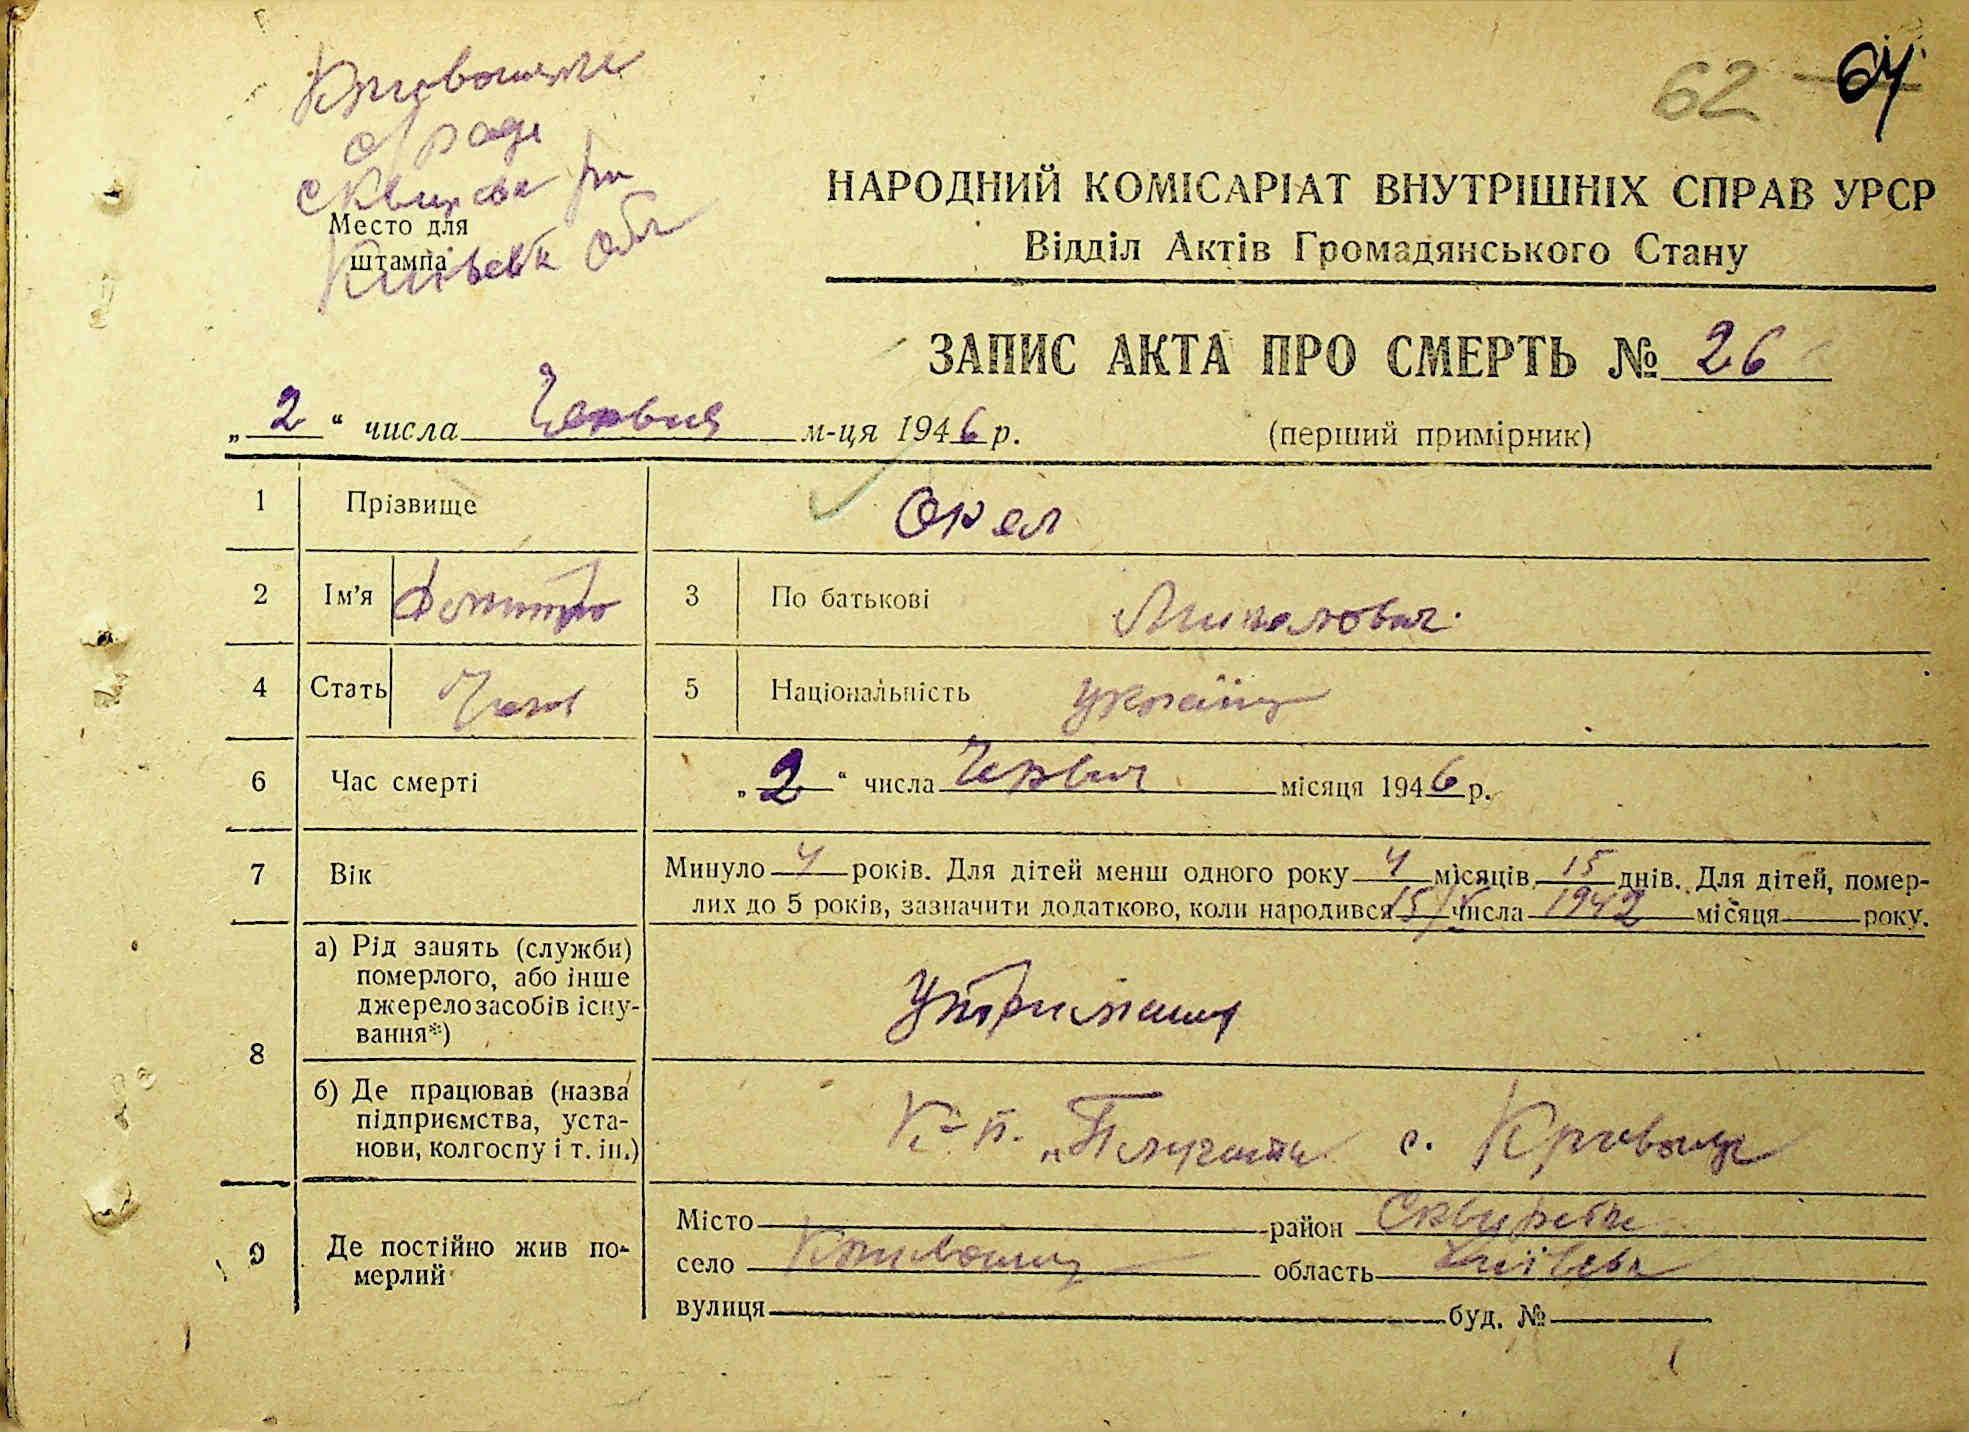 с/ради
Сквирськ р-н
Место для
штампа
Київськ обл
62 64
НАРОДНИЙ КОМІСАРІАТ ВНУТРІШНІХ СПРАВ УРСР
Відділ Актів Громадянського Стану
ЗАПИС АКТА ПРО СМЕРТЬ № 26
„ 2 “ числа Червня м-ця 1946 р.
(перший примірник)
1 Прізвище
2 Ім’я Дмитро 3 По батькові
4 Стать Чол 5 Національність українц
6 Час смерті „ 2 “ числа Червня місяця 1946 р.
7 Вік Минуло 4 років. Для дітей менш одного року 4 місяців 15 днів. Для дітей, помер-
лих до 5 років, зазначити додатково, коли народився числа 1942 місяця року.
8 а) Рід занять (служби)
померлого, або інше
джерело засобів існу-
вання*)
утриманец
б) Де працював (назва
підприємства, уста-
нови, колгоспу і т. ін.)
К-п. с. Кривошиї
9 Де постійно жив по-
мерлий
Місто район Сквирськ
село Кривошиї область Київськ
вулиця буд. №